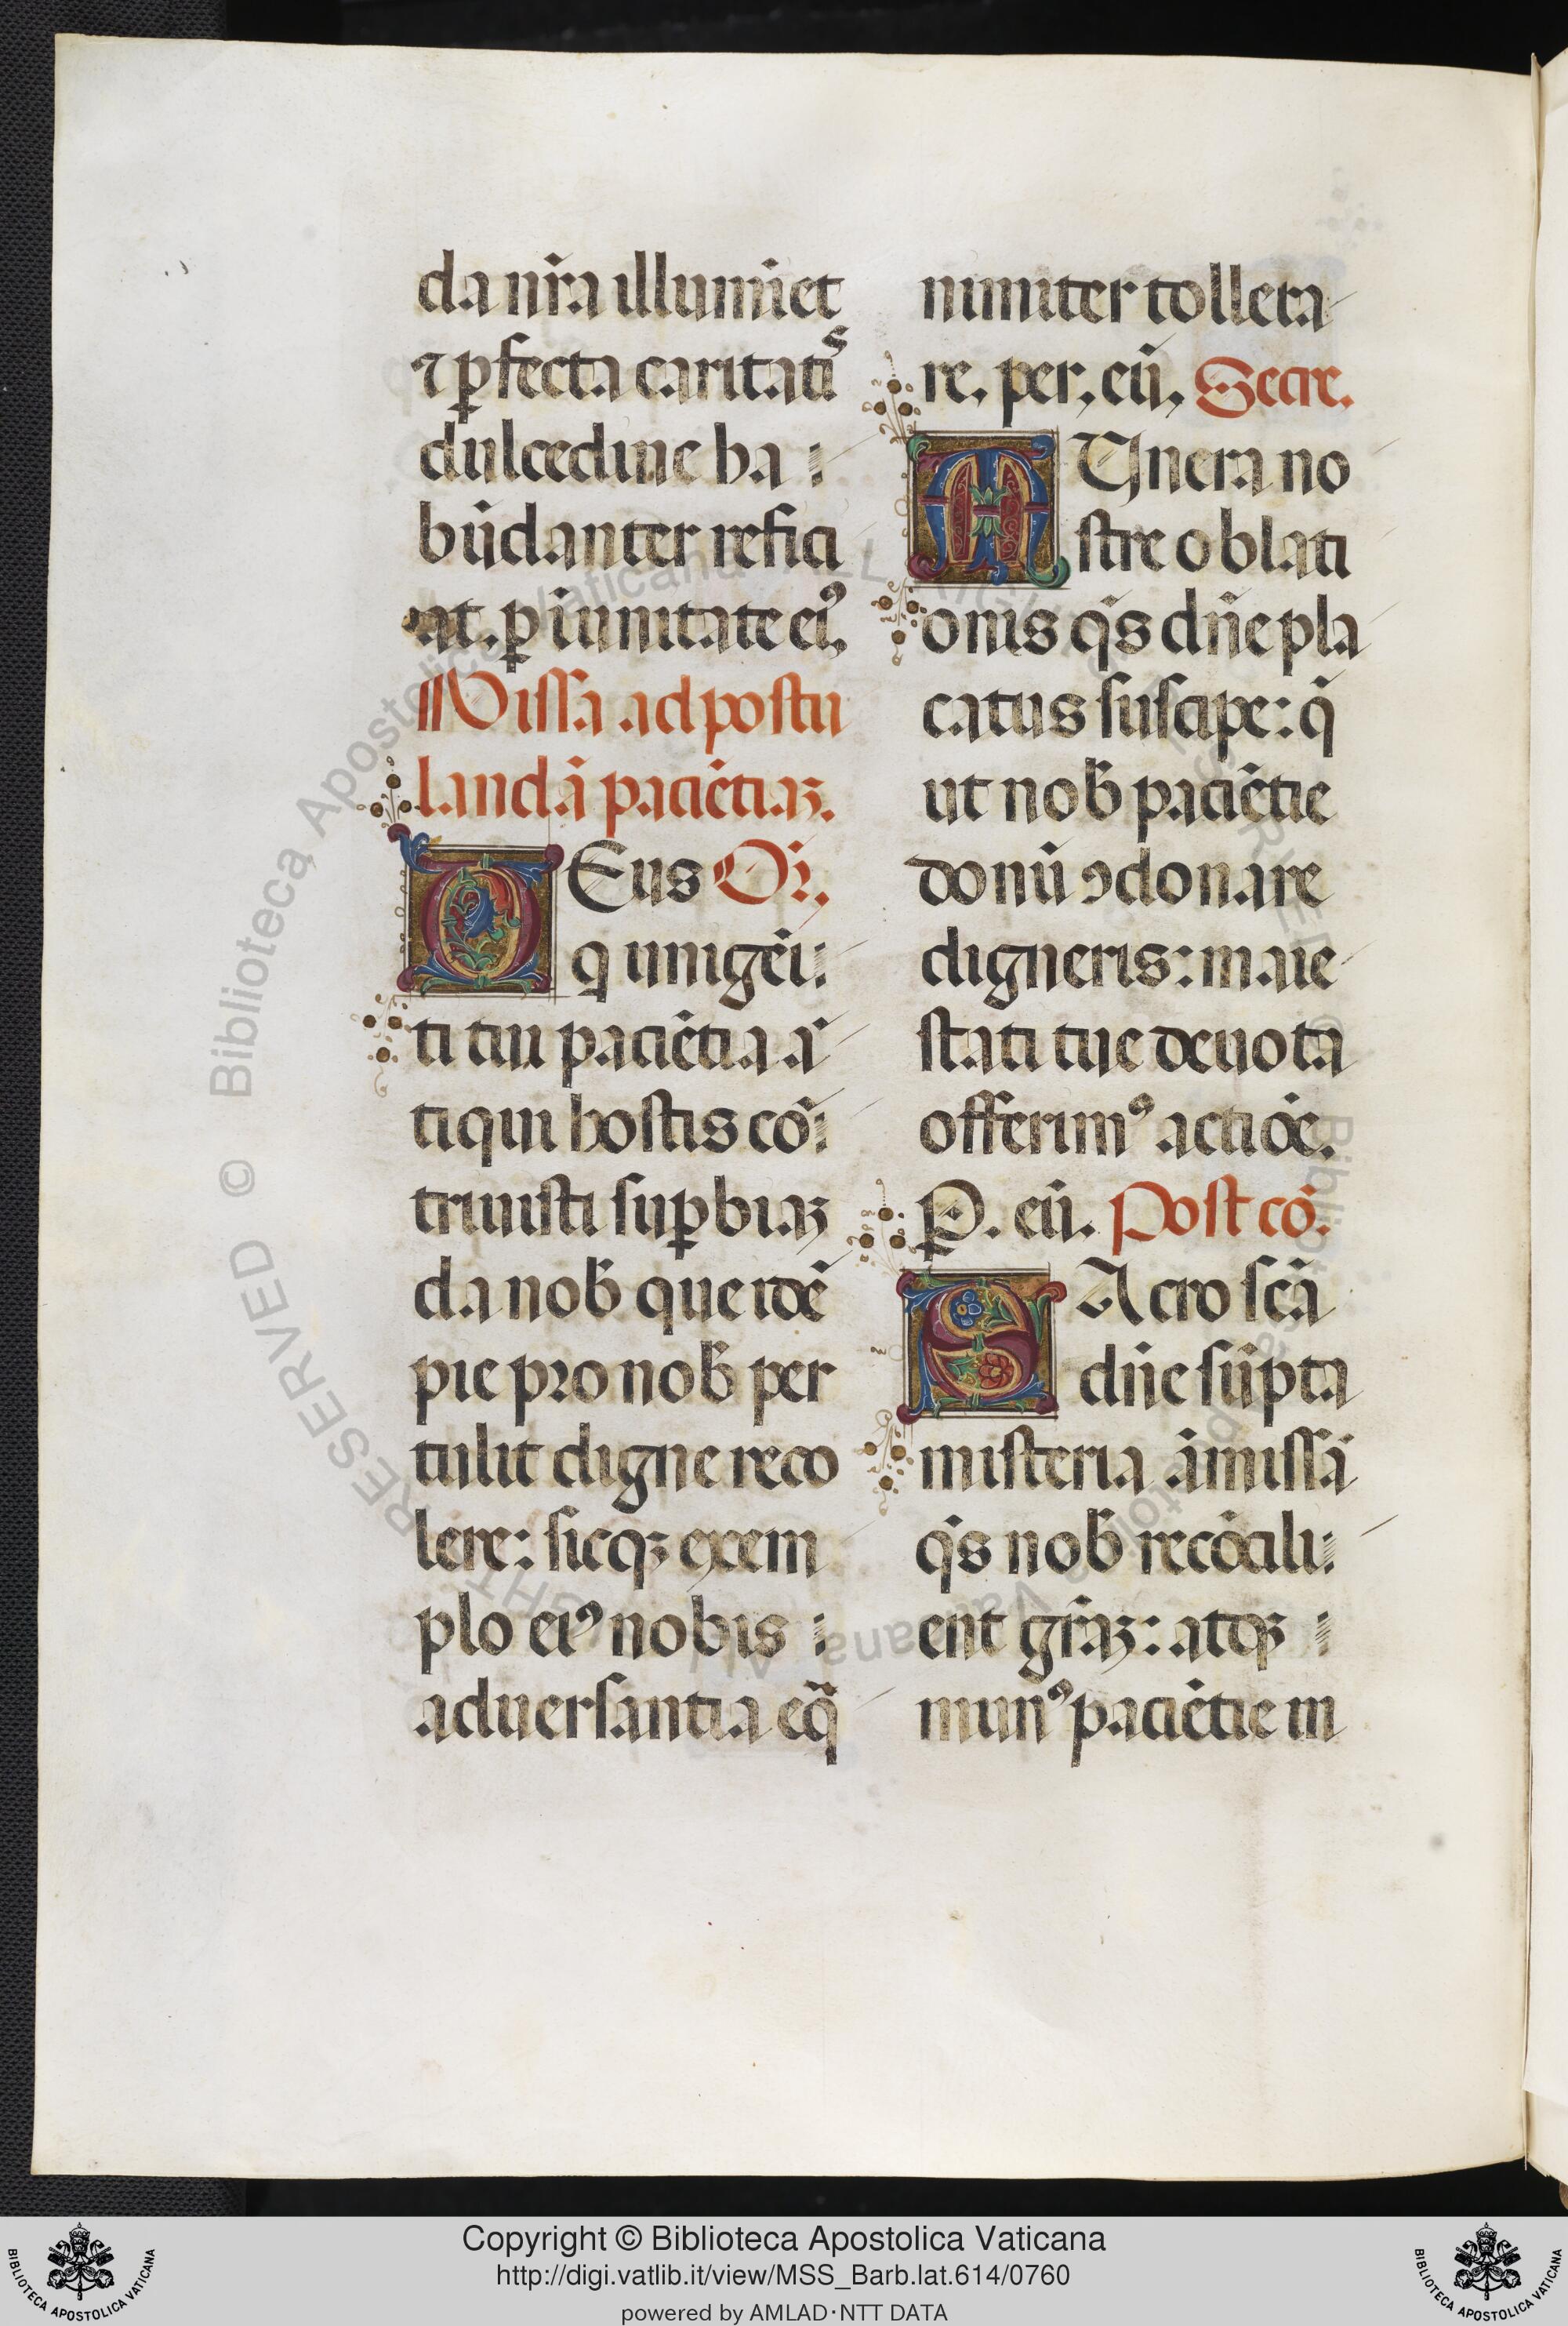 da nr̄a illumīet
⁊ ꝑfecta caritatiˢ
dulcedine ha
būdanter refici
at. ꝑ ī unitate eiꝰ.
Missa ad postu
landā paciētiaꝫ.
DEus Or̄.
q unigēi
ti tui paciētia ā
tiqui hostis cō
triuisti suꝑbiaꝫ
da nob̄ que idē
pie pro nob̄ per
tulit digne reco
lere: sicqꝫ exem
plo eiꝰ nobis
aduersantia eq̄
nimiter tollera
re. per. eū. Secre.
MUnera no
stre oblati
onis qs̄ dn̄e pla
catus suscipe: q̄
ut nob̄ paciētie
donū ꝯdonare
digneris: maie
stati tue deuota
offerimꝰ actiōe.
P. eū. Post cō.
SAcro scā
dn̄e sūpta
misteria āmissā
qs̄ nob̄ recōcili
ent gr̄aꝫ: atqꝫ
munꝰ paciētie in
© Biblioteca Apostolica Vaticana
Copyright © Biblioteca Apostolica Vaticana
http://digi.vatlib.it/view/MSS_Barb.lat.614/0760
powered by AMLAD·NTT DATA
BIBLIOTECA APOSTOLICA VATICANA
BIBLIOTECA APOSTOLICA VATICANA